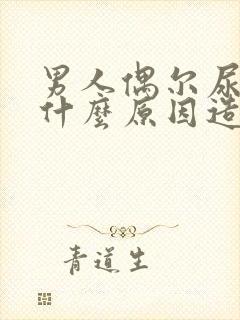 男人偶尔尿
什麽原因造
青道生